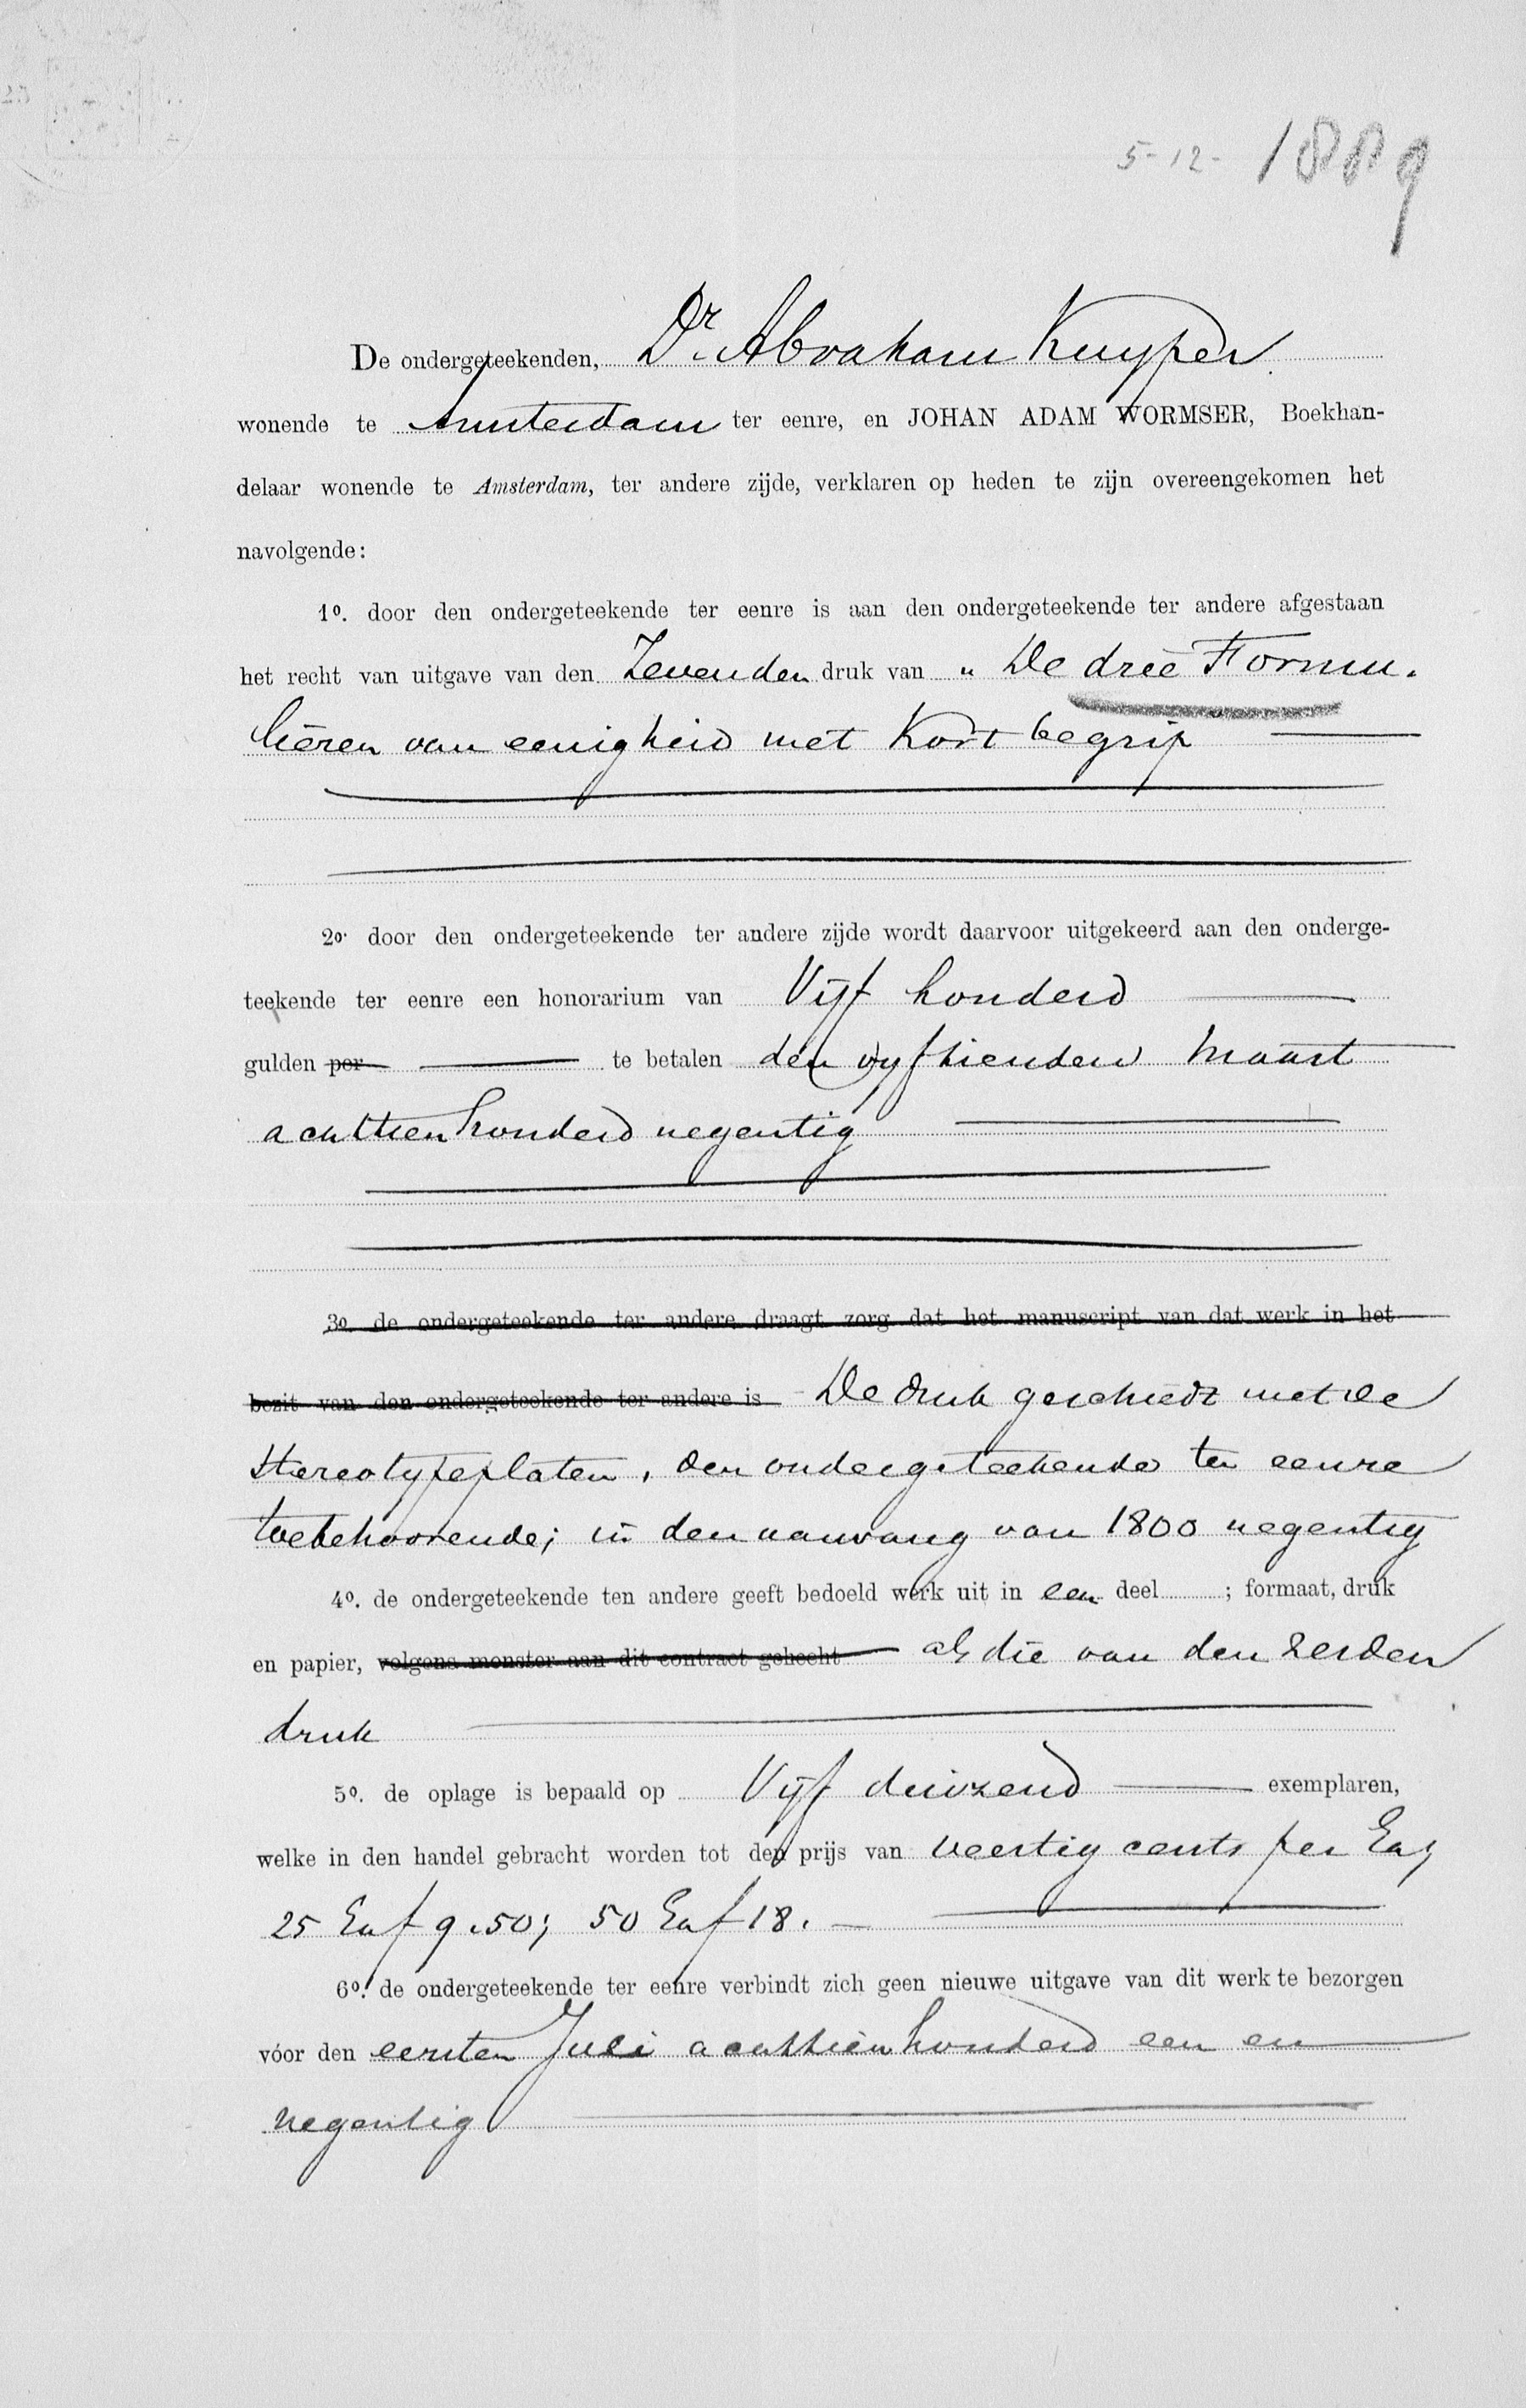 5-12- 1889
De ondergeteekenden, Dr. Abraham Kuyper
wonende te Amsterdam ter eenre, en JOHAN ADAM WORMSER, Boekhan-
delaar wonende te Amsterdam, ter andere zijde, verklaren op heden te zijn overeengekomen het
navolgende:
1º. door den ondergeteekende ter eenre is aan den ondergeteekende ter andere afgestaan
het recht van uitgave van den Zevenden druk van „ De drie Formu-
lieren van eenigheid met Kort begrip
2º. door den ondergeteekende ter andere zijde wordt daarvoor uitgekeerd aan den onderge-
teekende ter eenre een honorarium van Vijf honderd
gulden per te betalen den vyftienden Maart
achttienhonderd negentig
3º. de ondergeteekende ter andere draagt zorg dat het manuscript van dat werk in het
bezit van den ondergeteekende ter andere is De druk geschiedt met de
stereotypeplaten, den ondergeteekende ter eenre
toebehoorende; in den aanvang van 1800 negentig
4º. de ondergeteekende ten andere geeft bedoeld werk uit in een deel ; formaat, druk
en papier, volgens monster aan dit contract gehecht als die van den zesden
druk
5º. de oplage is bepaald op Vijf duizend exemplaren,
welke in den handel gebracht worden tot den prijs van veertig cents per Ex;
25 Ex f 9.50; 50 Ex f 18.
6º. de ondergeteekende ter eenre verbindt zich geen nieuwe uitgave van dit werk te bezorgen
vóor den eersten Juli achttienhonderd een en
negentig